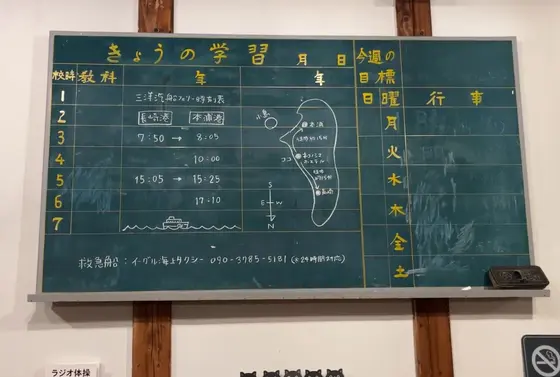 きょうの学習 月 日
校時 教科 年 年
今週の目標
日曜 行事
1 三洋汽船フェリー時刻表
2 長崎港 本浦港
3 7:50 → 8:05
4 10:00
5 15:05 → 15:25
6 17:10
7
小島
本浦
ココ
長崎
S
E W
N
月
火
水
木
金
土
救急船:イーグル海上タクシー 090-3785-5181 (※24時間対応)
ラジオ体操